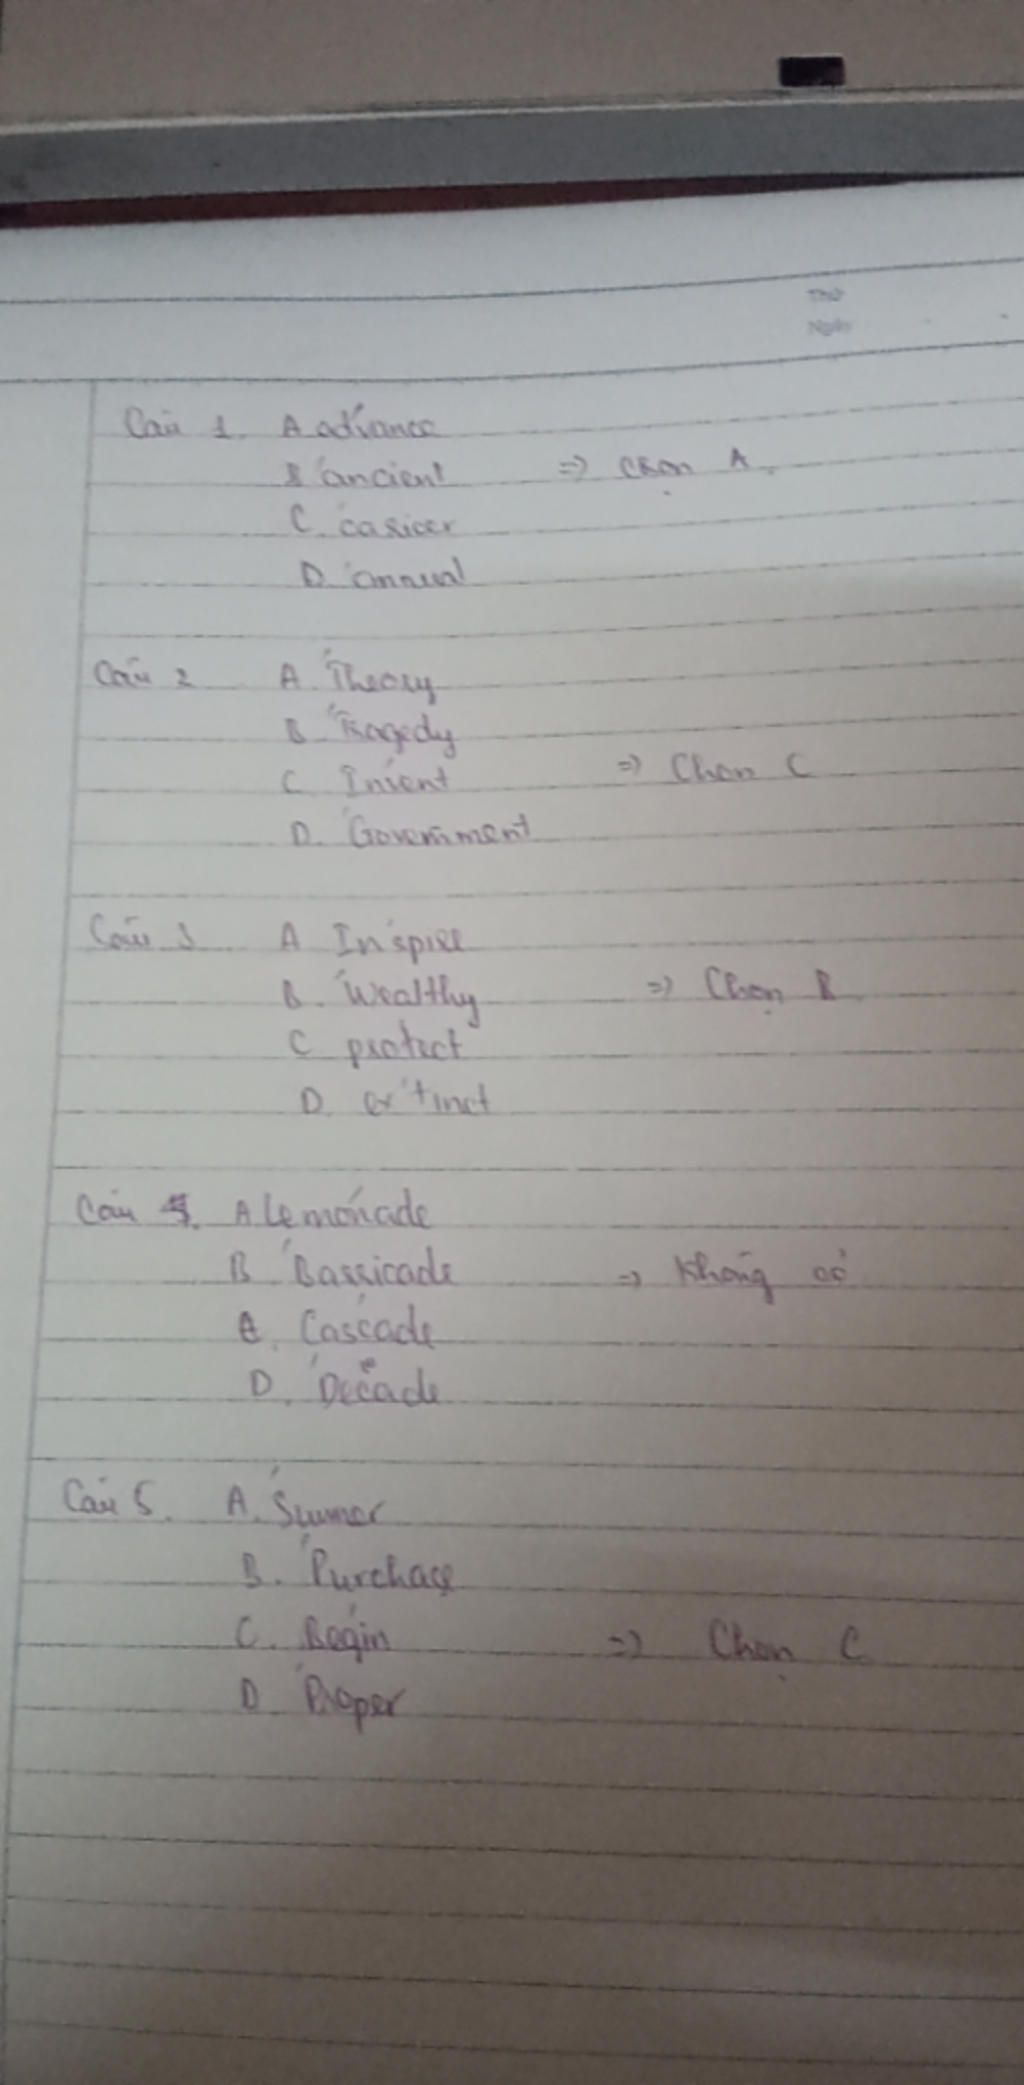 Thứ
Ngày
Câu 1. A ad'vance
B 'ancient => Chọn A.
C. 'carieer
D. 'annual
Câu 2 A. 'Theory
B. 'Tragedy
C. In'ent => Chọn C
D. 'Government
Câu 3 A In'spire
B. 'Wealthy => Chọn B
C pro'tect
D. ex'tinct
Câu 4. A Lemo'nade
B 'Barricade => Không có
C. Cas'cade
D. 'Decade
Câu 5. A. 'Summer
B. 'Purchase
C. Be'gin => Chọn C
D 'Proper